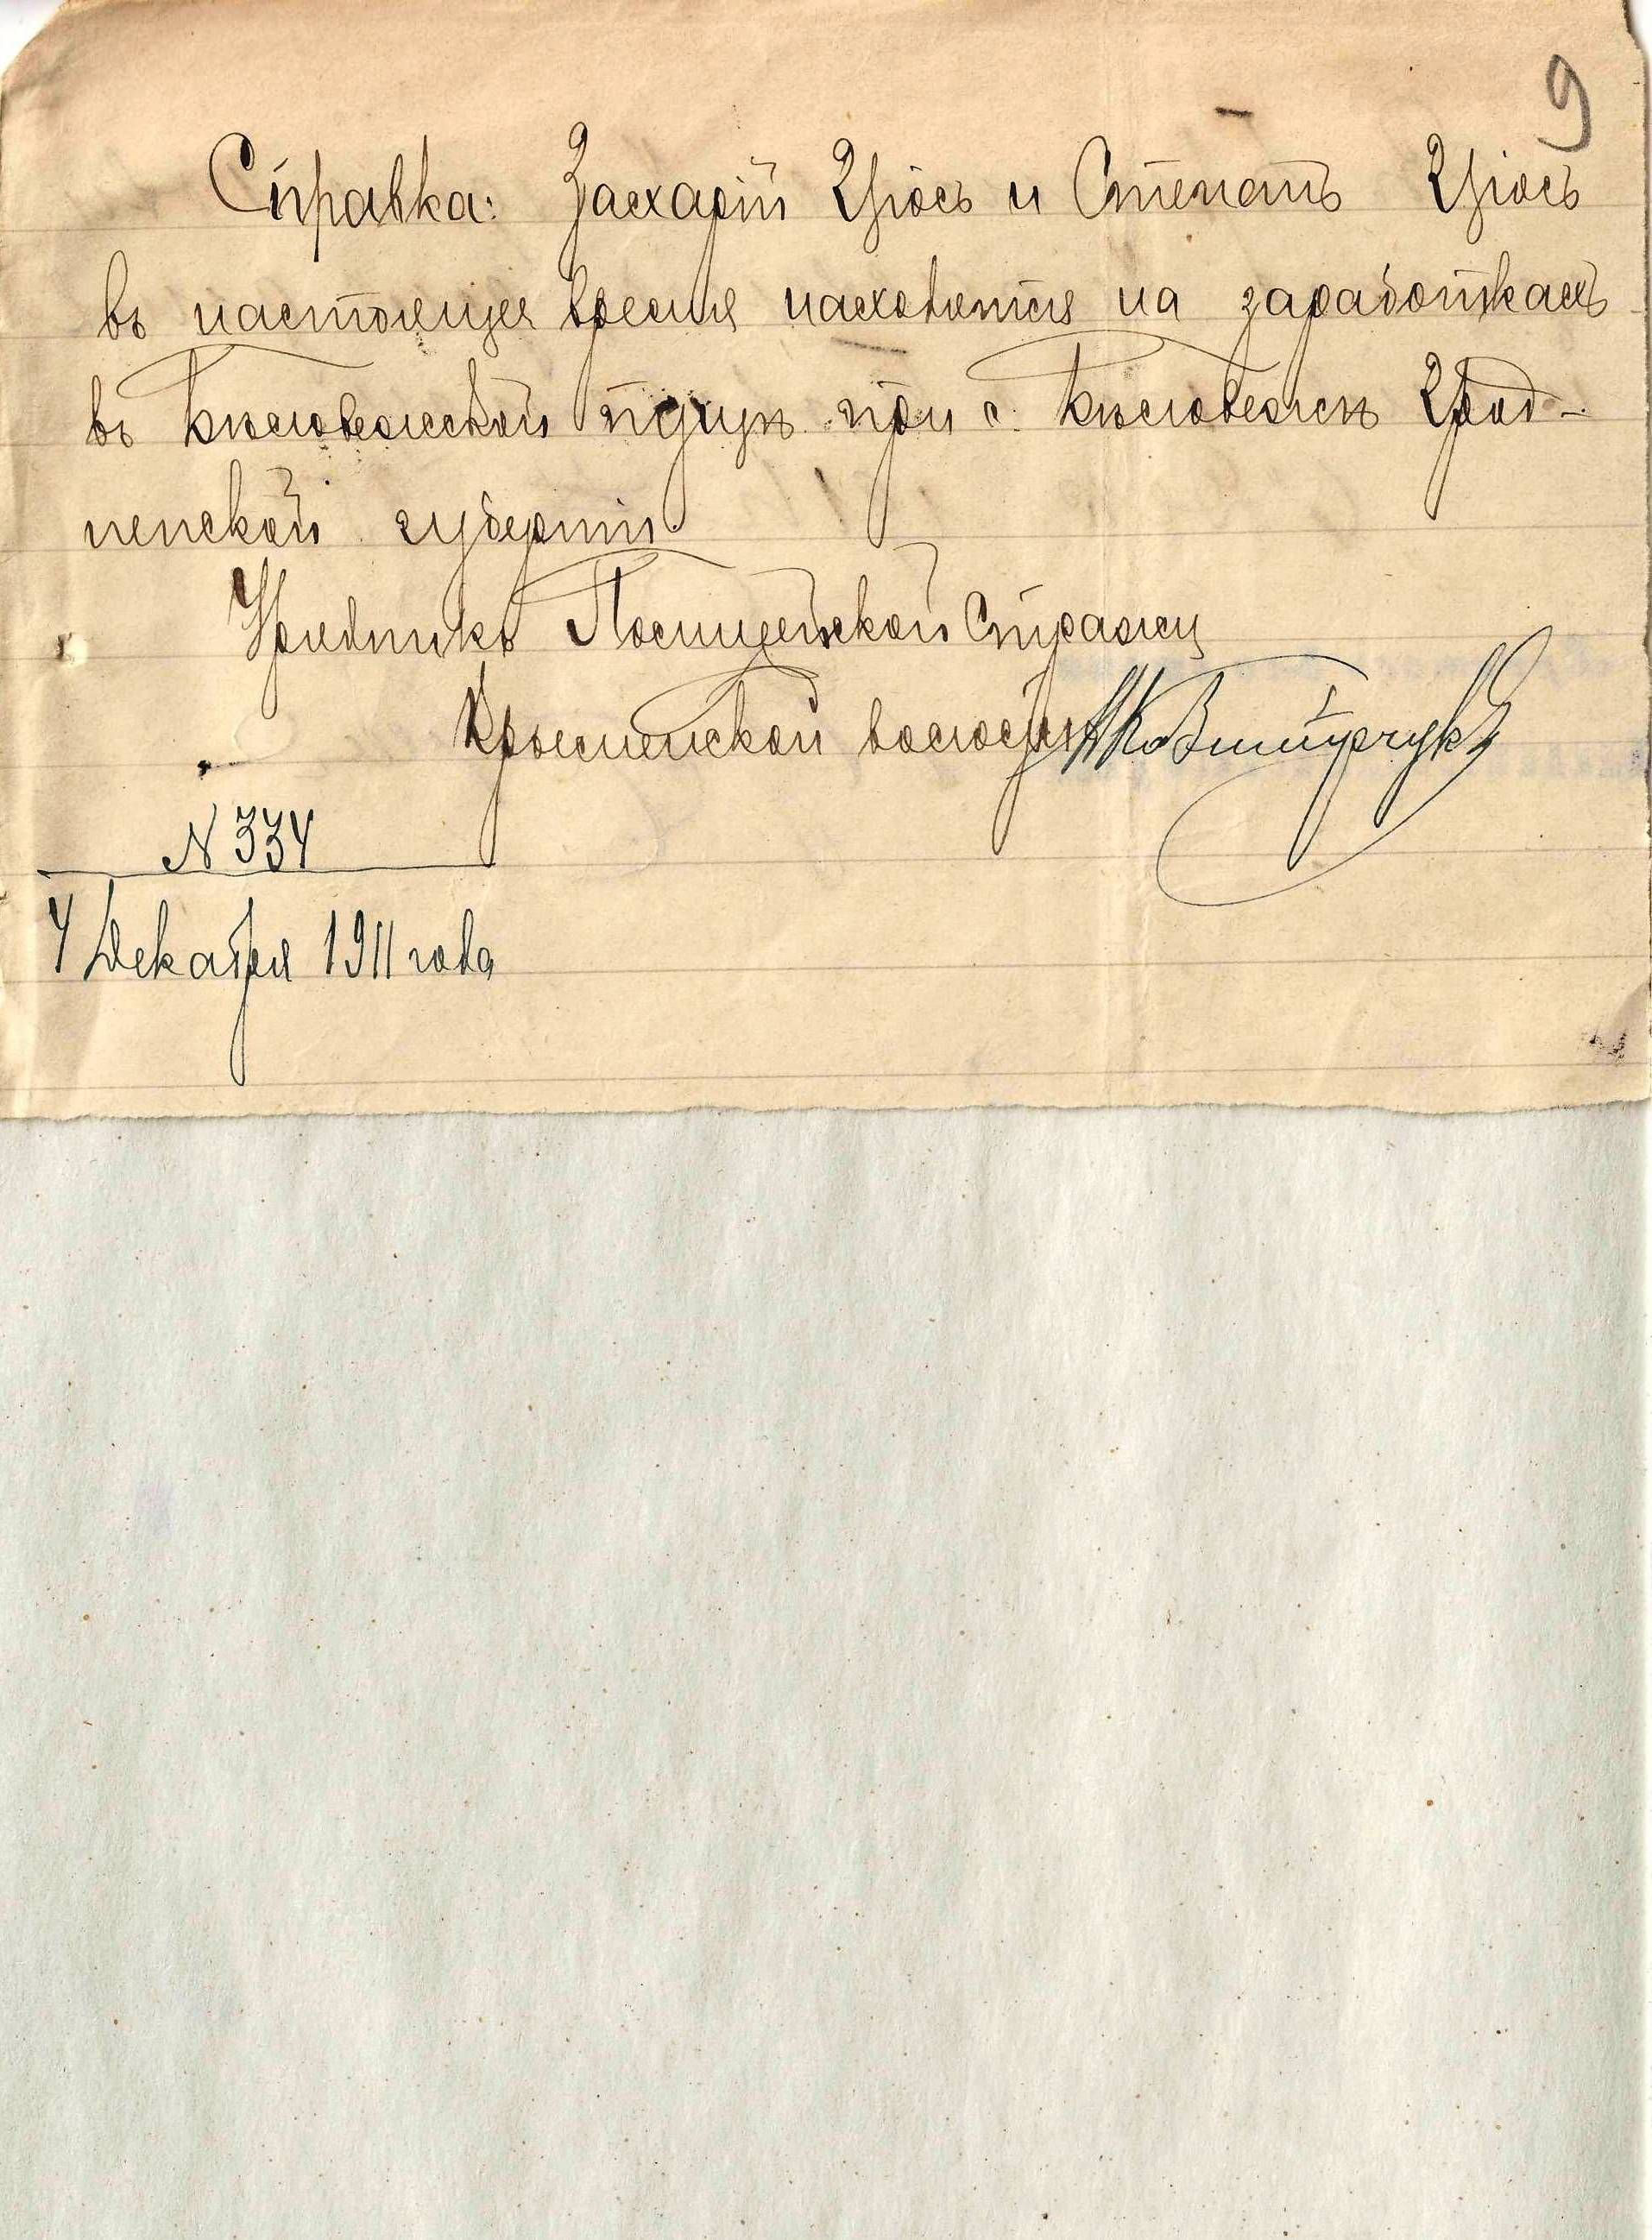 9
Справка: Захарій Грiось и Степанъ Грiось
въ настоящее время находятся на заработкахъ
въ Бѣловежской пущѣ при с. Бѣловежѣ Грод-
ненской губерніи
Урядникъ Полицейской Стражи
Крымненской волости
N 334
4 Декабря 1911 года